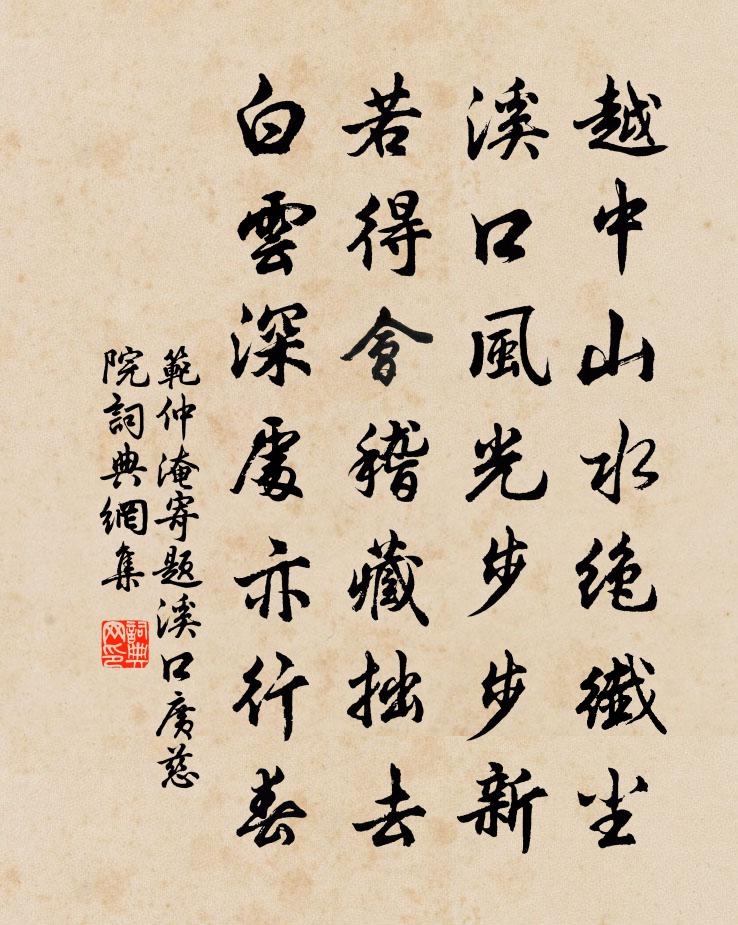 越中山水绝纖尘
溪口風光步步新
若得會稽藏拙去
白雲深處亦行春
範仲淹寄題溪口廣慈
院詞典網集
詞典
网印